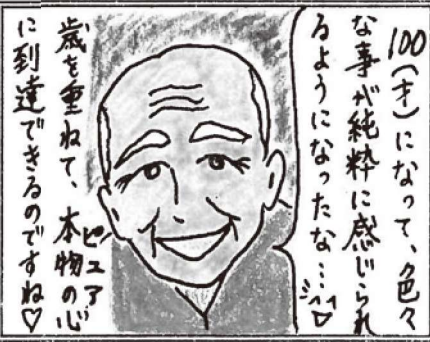 100(才)になって、色々
な事が純粋に感じられ
るようになったな…♡
歳を重ねて、本物の心
ピュア
に到達できるのですね♡